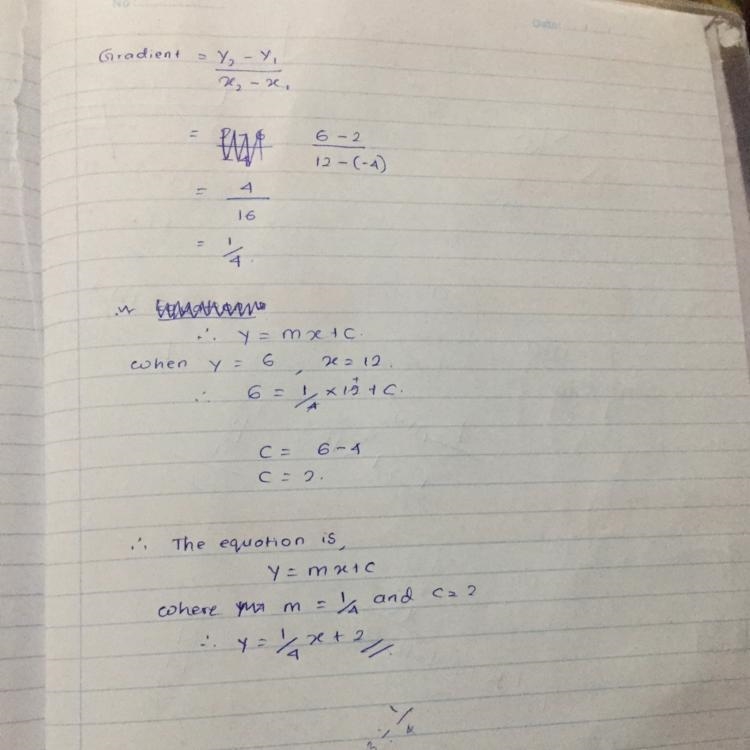 No
Date:
Gradient = y₂ - y₁
x₂ - x₁
= 6 - 2
12 - (-4)
= 4
16
= 1/4.
∴ y = mx + c.
when y = 6, x = 12.
∴ 6 = 1/4 × 12 + c.
c = 6 - 4
c = 2.
∴ The equation is,
y = mx + c
where m = 1/4 and c = 2
∴ y = 1/4 x + 2 //.